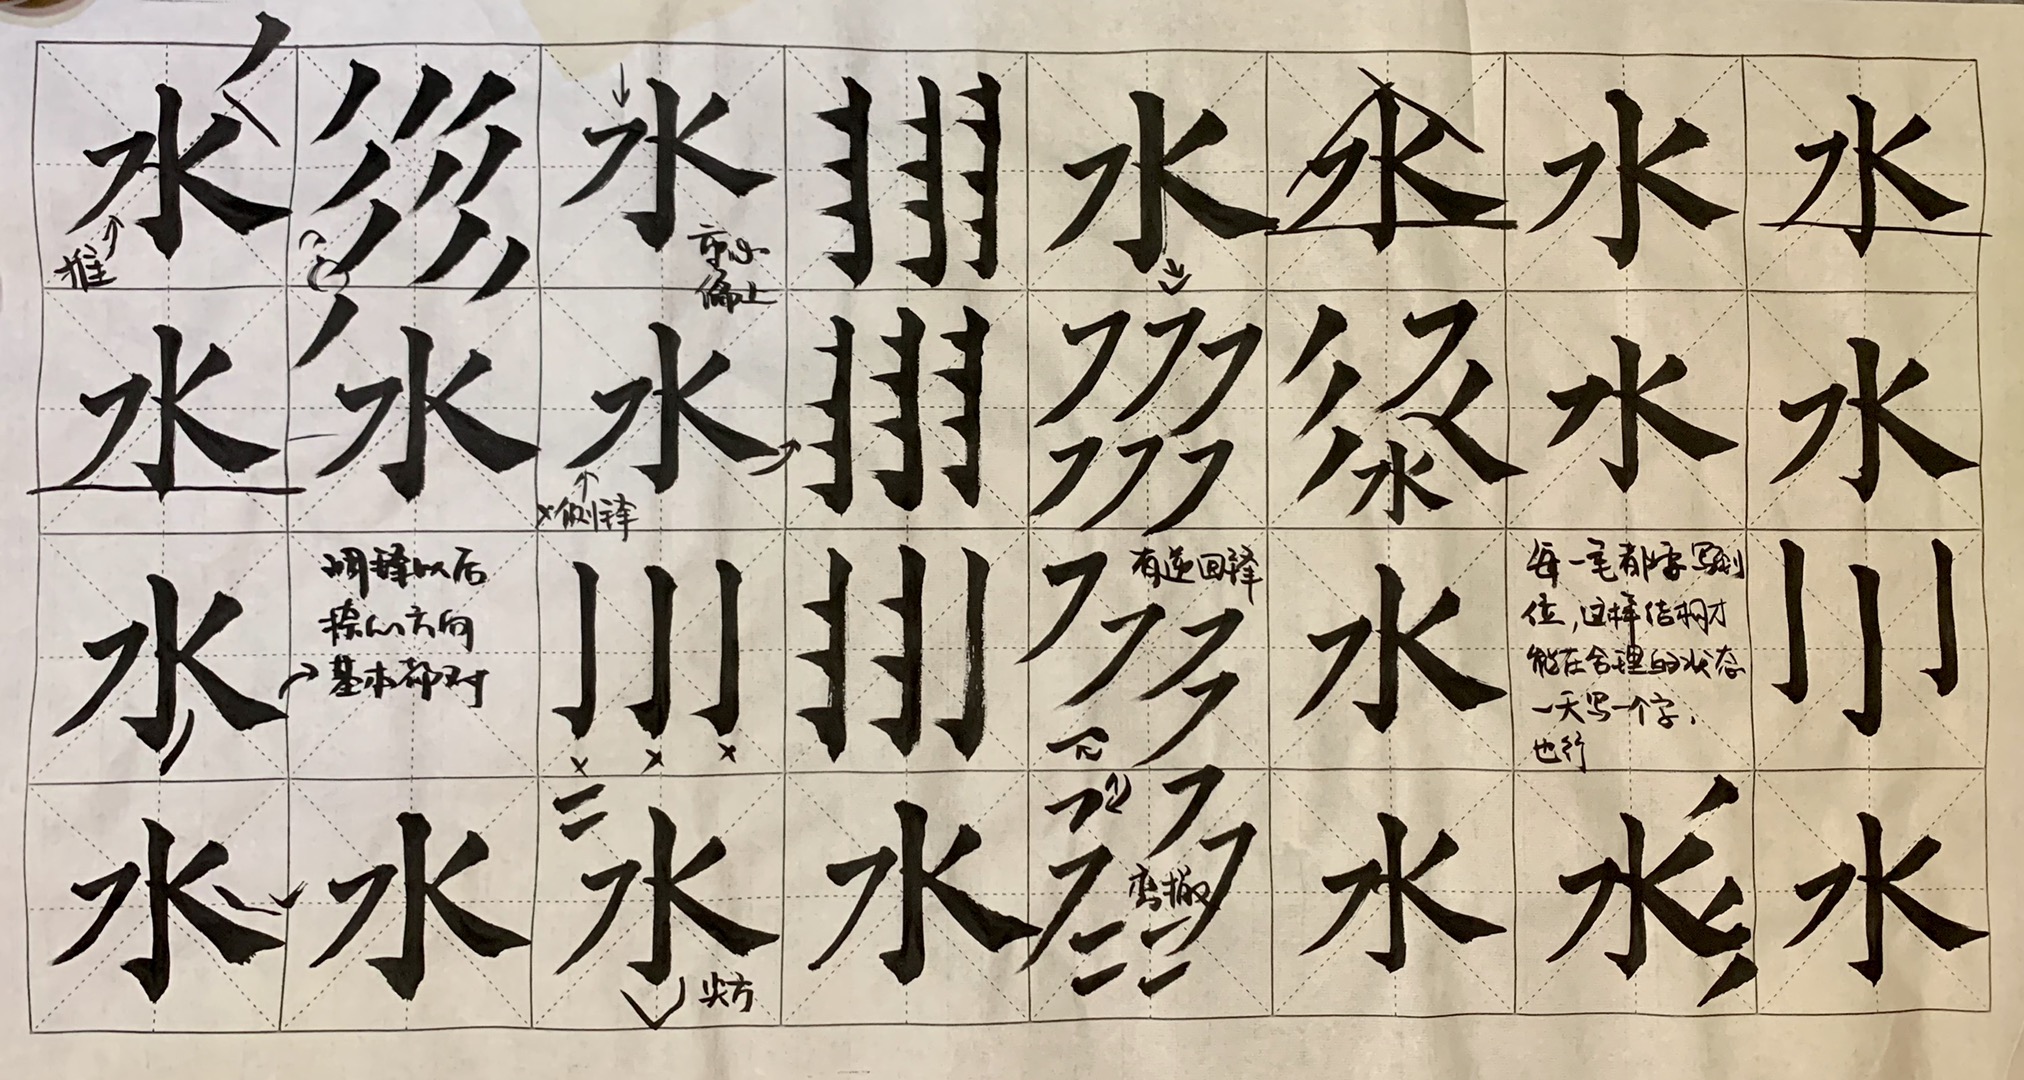 水 水 水 水 水 水
推
重心
偏上
水 水 水 水 水 水
×侧锋
水 调锋以后
捺的方向
基本都对
有逆回锋
水
每一笔都要写到
位,这样结构才
能在合理的状态
一天写一个字,
也行
水 水 水 水 水 水 水
弯撇
尖方